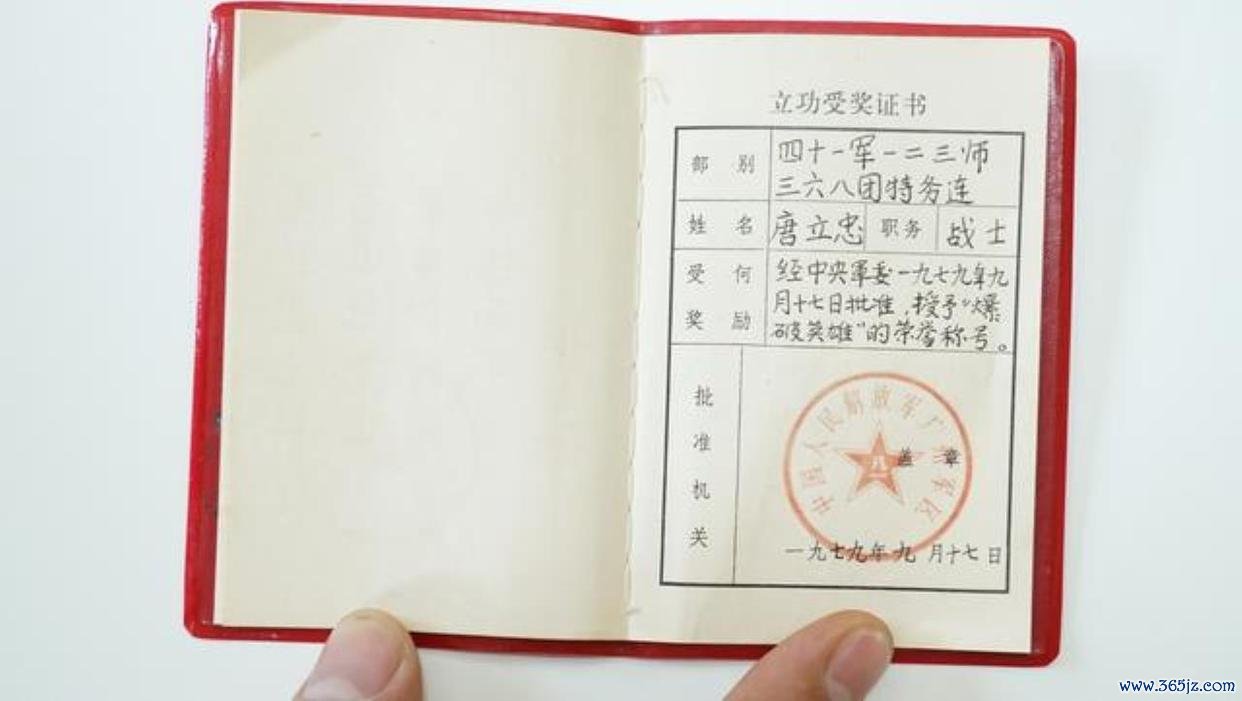 立功受奖证书
部 别
四十一军一二三师
三六八团特务连
姓 名
唐立忠
职务
战士
受 何
奖 励
经中央军委一九七九年九
月十七日批准，授予“爆
破英雄”的荣誉称号。
批
准
机
关
中国人民解放军广州军区
八一
盖 章
一九七九年九月十七日
www.365jz.com